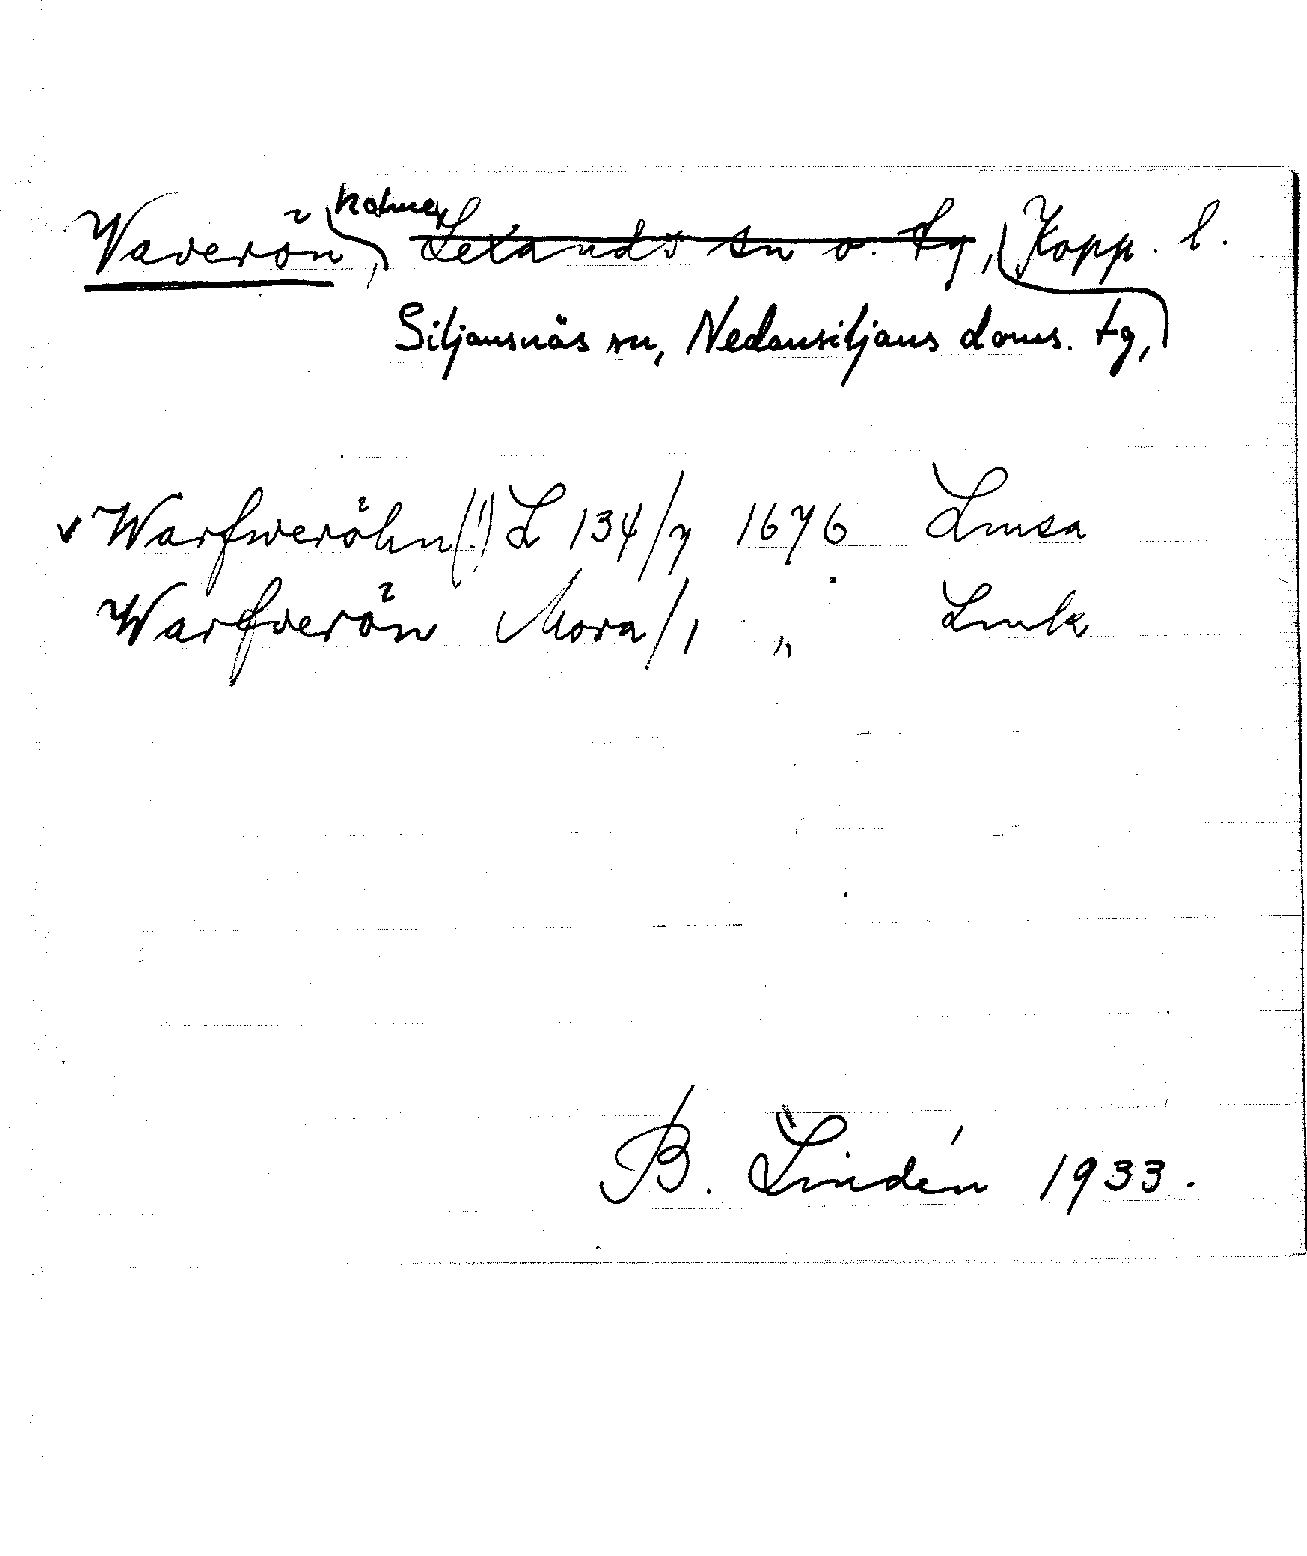 Vaverön, holme, Leksands sn o. tg, Kopp. l.
Siljansnäs sn, Nedansiljans doms. tg,
v Warfweröhn (!) L 134/7 1676 Lmsa
Warfverön Mora/1 „ Lmk
B. Lindén 1933.